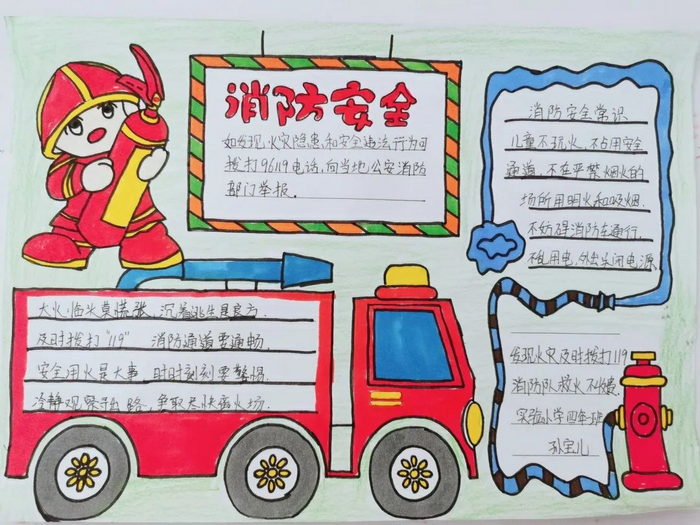 消防安全
如发现火灾隐患和安全违法行为可
拨打96119电话,向当地公安消防
部门举报.
消防安全常识
儿童不玩火,不占用安全
通道,不在严禁烟火的
场所用明火和吸烟.
不妨碍消防车通行,
不乱用电,外出关闭电源
大火临头莫慌张,沉着逃生是良方.
及时拨打"119" 消防通道要通畅
安全用火是大事 时时刻刻要警惕.
冷静观察 路,争取尽快离火场.
发现火灾及时拨打119
消防队救火不收费.
实验小学四年 班
孙宝儿